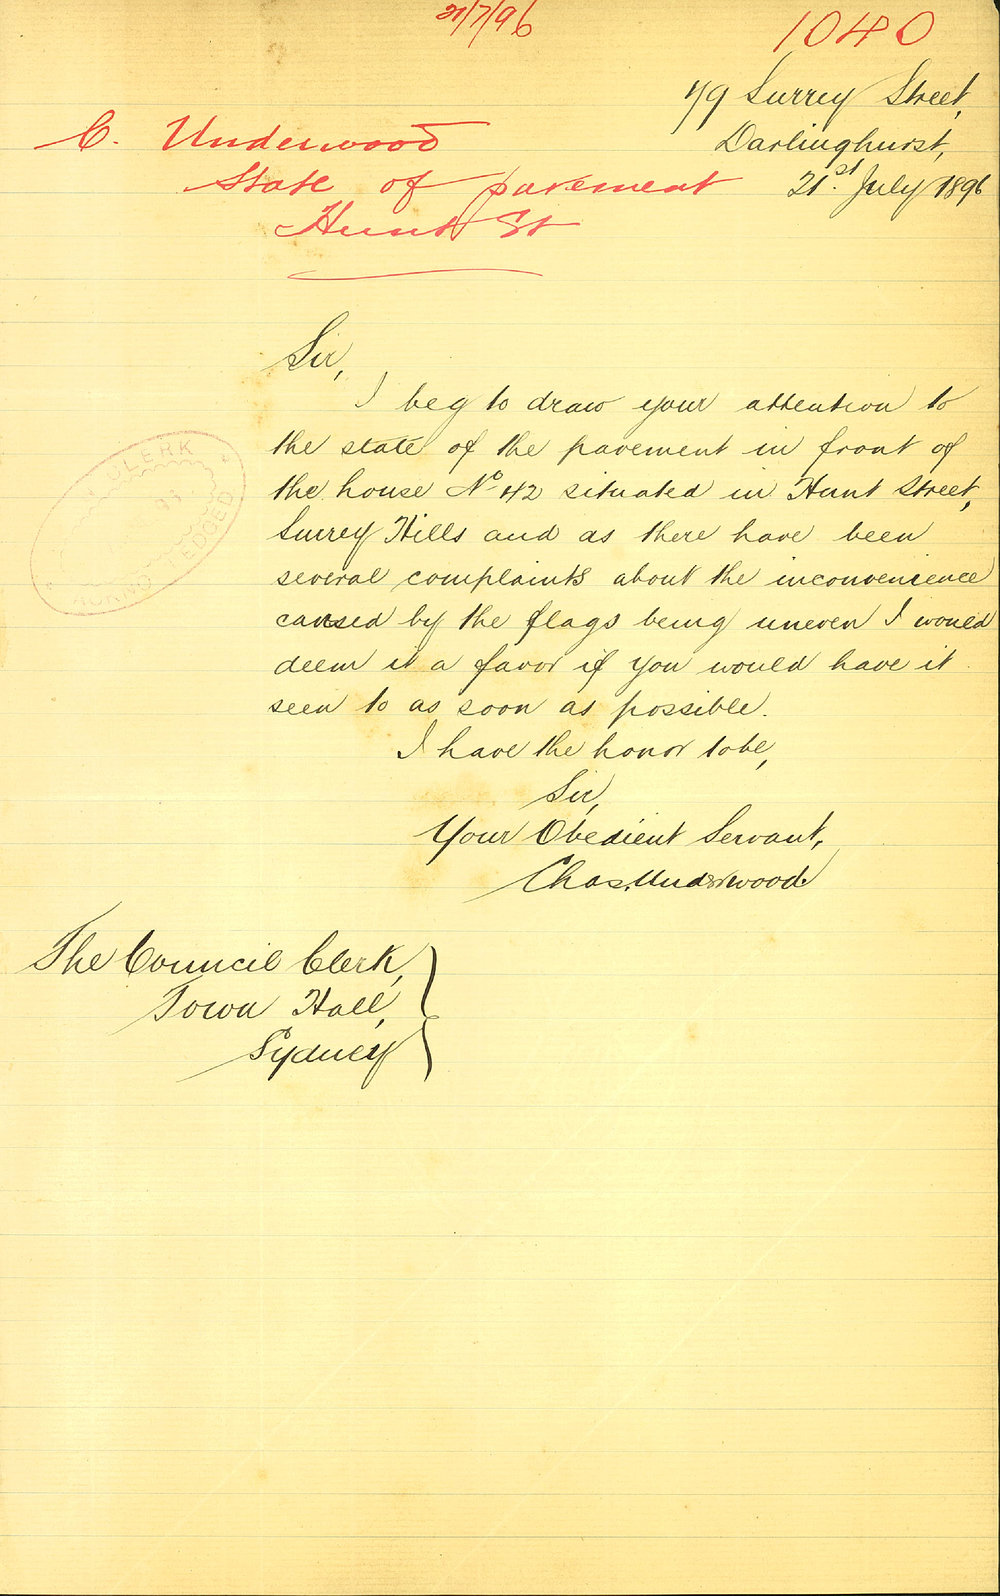 21/7/96
1040
79 Surrey Street,
Darlinghurst,
21st July 1896
C. Underwood
State of pavement
Hunt St
Sir,
I beg to draw your attention to
the state of the pavement in front of
the house No 42 situated in Hunt Street,
Surrey Hills and as there have been
several complaints about the inconvenience
caused by the flags being uneven I would
deem it a favor if you would have it
seen to as soon as possible.
I have the honor to be,
Sir,
Your Obedient Servant,
Chas. Underwood.
CLERK
The Council Clerk,
Town Hall,
Sydney